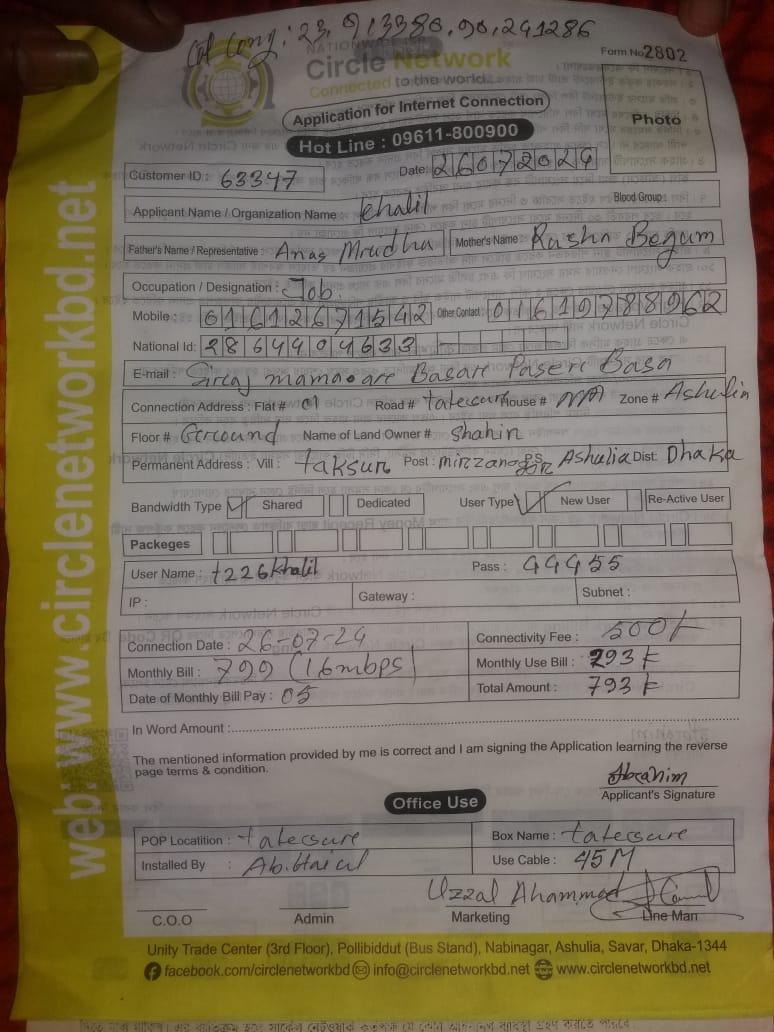 23.913380,90,241286
NATIONWIDE ISP
Circle Network
Connected to the world.
Form No 2802
Application for Internet Connection
Photo
Hot Line : 09611-800900
Customer ID : 63347
Date: 26072024
Applicant Name / Organization Name Khalil
Blood Group:
Father's Name / Representative : Anas Mrudha Mother's Name : Rashn Begum
Occupation / Designation : Job.
Mobile : 01612671542 Other Contact : 01619788962
National Id: 2864404633
E-mail : Siraj mamar are Basare Paser Basa
Connection Address : Flat # 01 Road # tatersure House # N/A Zone # Ashulia
Floor # Ground Name of Land Owner # Shahin
Permanent Address : Vill : taksur Post : mirzanagor P.S Ashulia Dist: Dhaka
Bandwidth Type Shared Dedicated User Type New User Re-Active User
Packeges
User Name : t226khalil Pass : 44455
IP : Gateway : Subnet :
Connection Date : 26-07-24 Connectivity Fee : 500/-
Monthly Bill : 799 (16mbps) Monthly Use Bill : 293 t
Date of Monthly Bill Pay : 05 Total Amount : 793 t
In Word Amount :
The mentioned information provided by me is correct and I am signing the Application learning the reverse
page terms & condition.
Abrahim
Applicant's Signature
Office Use
POP Locatition : tatersure Box Name : tatersure
Installed By : Use Cable : 45M
Uzzal Ahammed
C.O.O Admin Marketing Line Man
Unity Trade Center (3rd Floor), Pollibiddut (Bus Stand), Nabinagar, Ashulia, Savar, Dhaka-1344
facebook.com/circlenetworkbd info@circlenetworkbd.net www.circlenetworkbd.net
web: www.circlenetworkbd.net